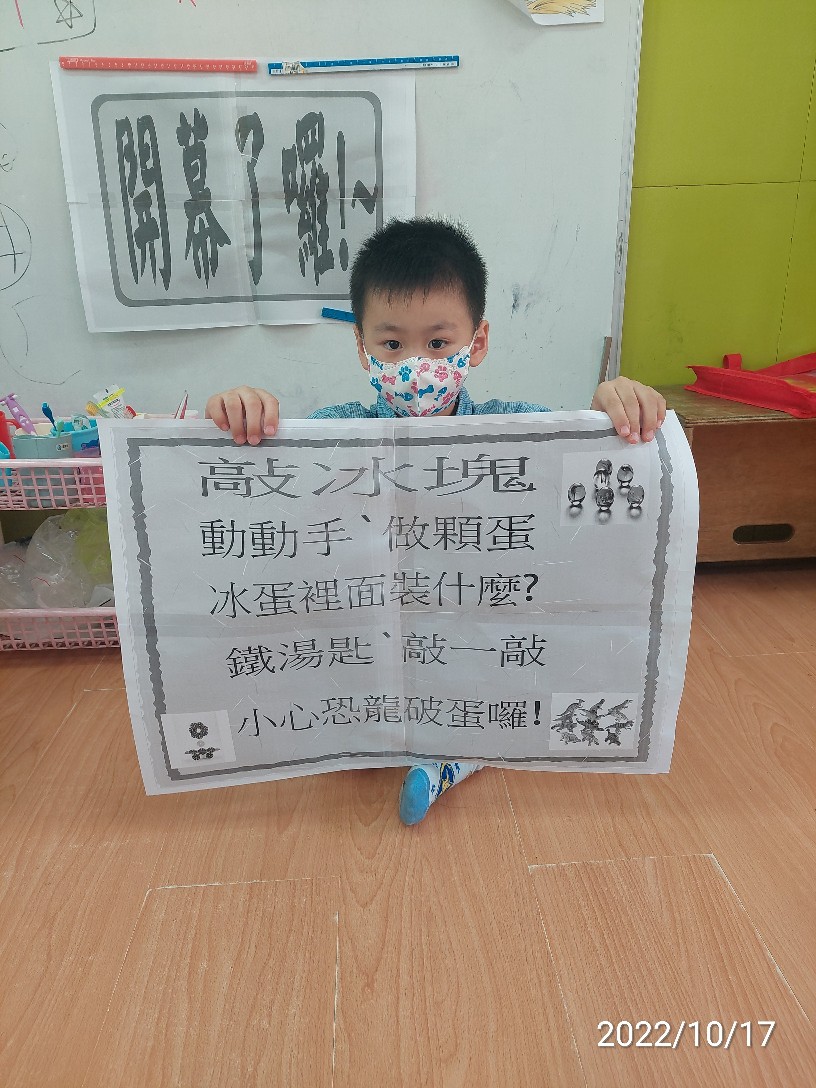 開幕了囉!~
敲冰塊
動動手、做顆蛋
冰蛋裡面裝什麼?
鐵湯匙、敲一敲
小心恐龍破蛋囉!
2022/10/17